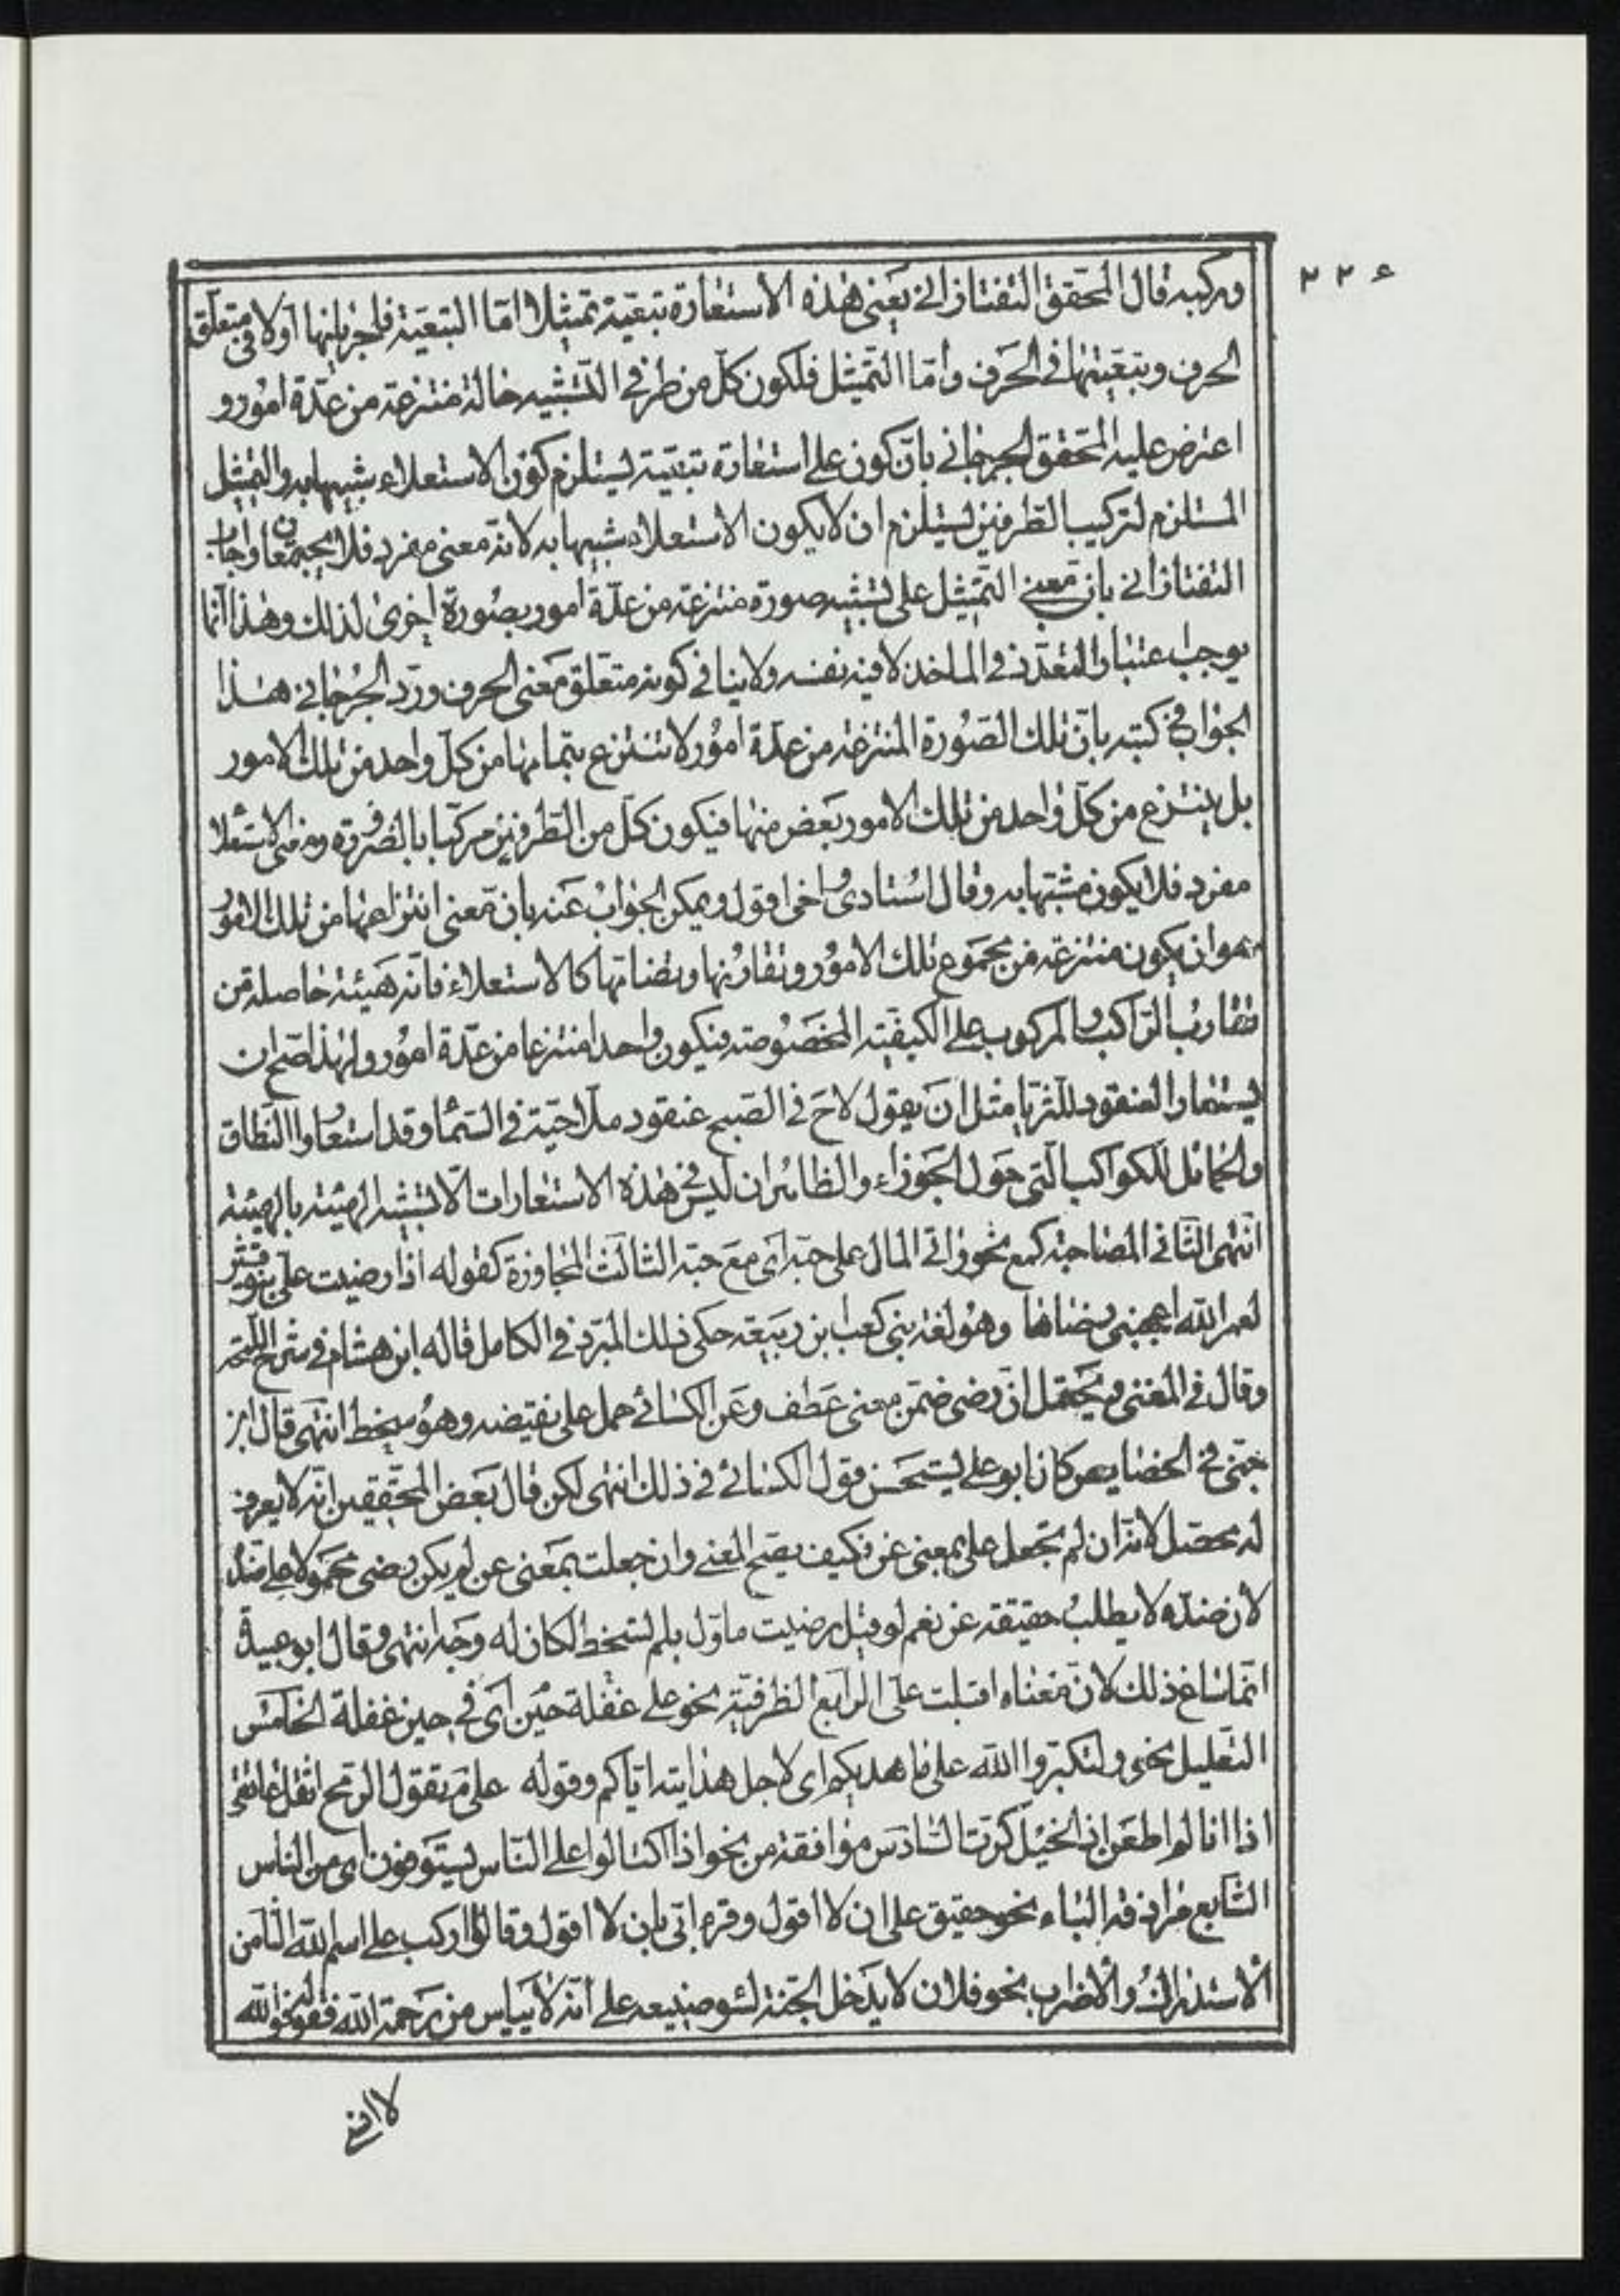 ٢٢٤
وركبه قال المحقق التفتازانى يعنى هذه الاستعارة تبعية تمثيلا امّا التبعية فلجريانها اولا فى متعلق
الحرف وتبعيتها فى الحرف وأمّا التّمثيل فلكون كلّ من طرفى التّشبيه حالة منتزعة من عدّة امور و
اعترض عليه المحقق الجرجانى بانّ كون على استعارة تبعيّة يستلزم كون الاستعلاء شبيها به والتمثيل
المستلزم لتركيب الطرفين يستلزم ان لا يكون الاستعلاء شبيها به لانه معنى مفرد فلا يجتمعان واجاب
التفتازانى بان معنى التّمثيل على تشبيه صورة منتزعة من عدّة امور بصورة اخرى لذلك وهذا انّما
يوجب اعتبار التعدّد فى الماخذ لا فيه نفسه ولا ينافى كونه متعلّق معنى الحرف وردّ الجرجانى هذا
الجواب فى كتبه بانّ تلك الصّورة المنتزعة من عدّة امور لا تنتزع بتمامها من كلّ واحد من تلك الامور
بل ينتزع من كلّ واحد من تلك الامور بعض منها فيكون كلّ من الطرفين مركبا بالضرورة ومعنى الاستعلا
مفرد فلا يكون مشبّها به وقال استادى واخى اقول ويمكن الجواب عنه بان معنى انتزاعها من تلك الامور
هو ان يكون منتزعة من مجموع تلك الامور وتقارنها وتضامّها كالاستعلاء فانّه هيئة حاصلة من
تقارب الرّاكب والمركوب على الكيفيّة المخصوصة فيكون واحدا منتزعا من عدّة امور ولهذا صحّ ان
يستعار العنقود للثريّا مثل ان يقول لاح فى الصّبح عنقود ملّاحيّة فى السّماء وقد استعاروا النطاق
والحمائل للكواكب الّتى حول الجوزاء والظاهر ان ليس فى هذه الاستعارات الّا تشبيه الهيئة بالهيئة
انتهى الثّانى المصاحبة كمع نحو واتى المال على حبّه اى مع حبّه الثالث المجاوزة كقوله اذا رضيت علىّ بنو قشير
لعمر الله اعجبنى رضاها وهو لغة بنى كعب ابن ربيعة حكى ذلك المبرّد فى الكامل قاله ابن هشام فى شرح اللّمحة
وقال فى المغنى ويحتمل انّ رضى ضمّن معنى عطف وعن الكسائى حمل على نقيضه وهو سخط انتهى قال ابن
جنّى فى الخصايص كان ابو على يستحسن قول الكسائى فى ذلك انتهى لكن قال بعض المحقّقين انّه لا يعرف
له محصّل لانّه ان لم تجعل على بمعنى عن فكيف يصحّ المعنى وان جعلت بمعنى عن لم يكن رضى محمولا على ضدّه
لان ضدّه لا يطلب حقيقة عن نعم لو قيل رضيت ماوّل بلم تسخط لكان له وجه انتهى وقال ابو عبيدة
انّما ساغ ذلك لانّ معناه اقبلت علىّ الرّابع الظرفيّة نحو على غفلة حين اى فى حين غفلة الخامس
التعليل نحو ولتكبّروا الله على ما هديكم اى لاجل هدايته ايّاكم وقوله على م تقول الرمح اثقل عاتقى
اذا انا لم اطعن اذا الخيل كرّت السّادس موافقة من نحو اذا اكتالوا على النّاس يستوفون اى من الناس
السّابع موافقة الباء نحو حقيق على ان لا اقول وقرء ابىّ بان لا اقول وقالوا اركب على اسم الله الثامن
الاستدراك والاضراب نحو فلان لا يدخل الجنّة لسوء صنيعه على انّه لا يياس من رحمة الله فقوله فوالله
لا انسى